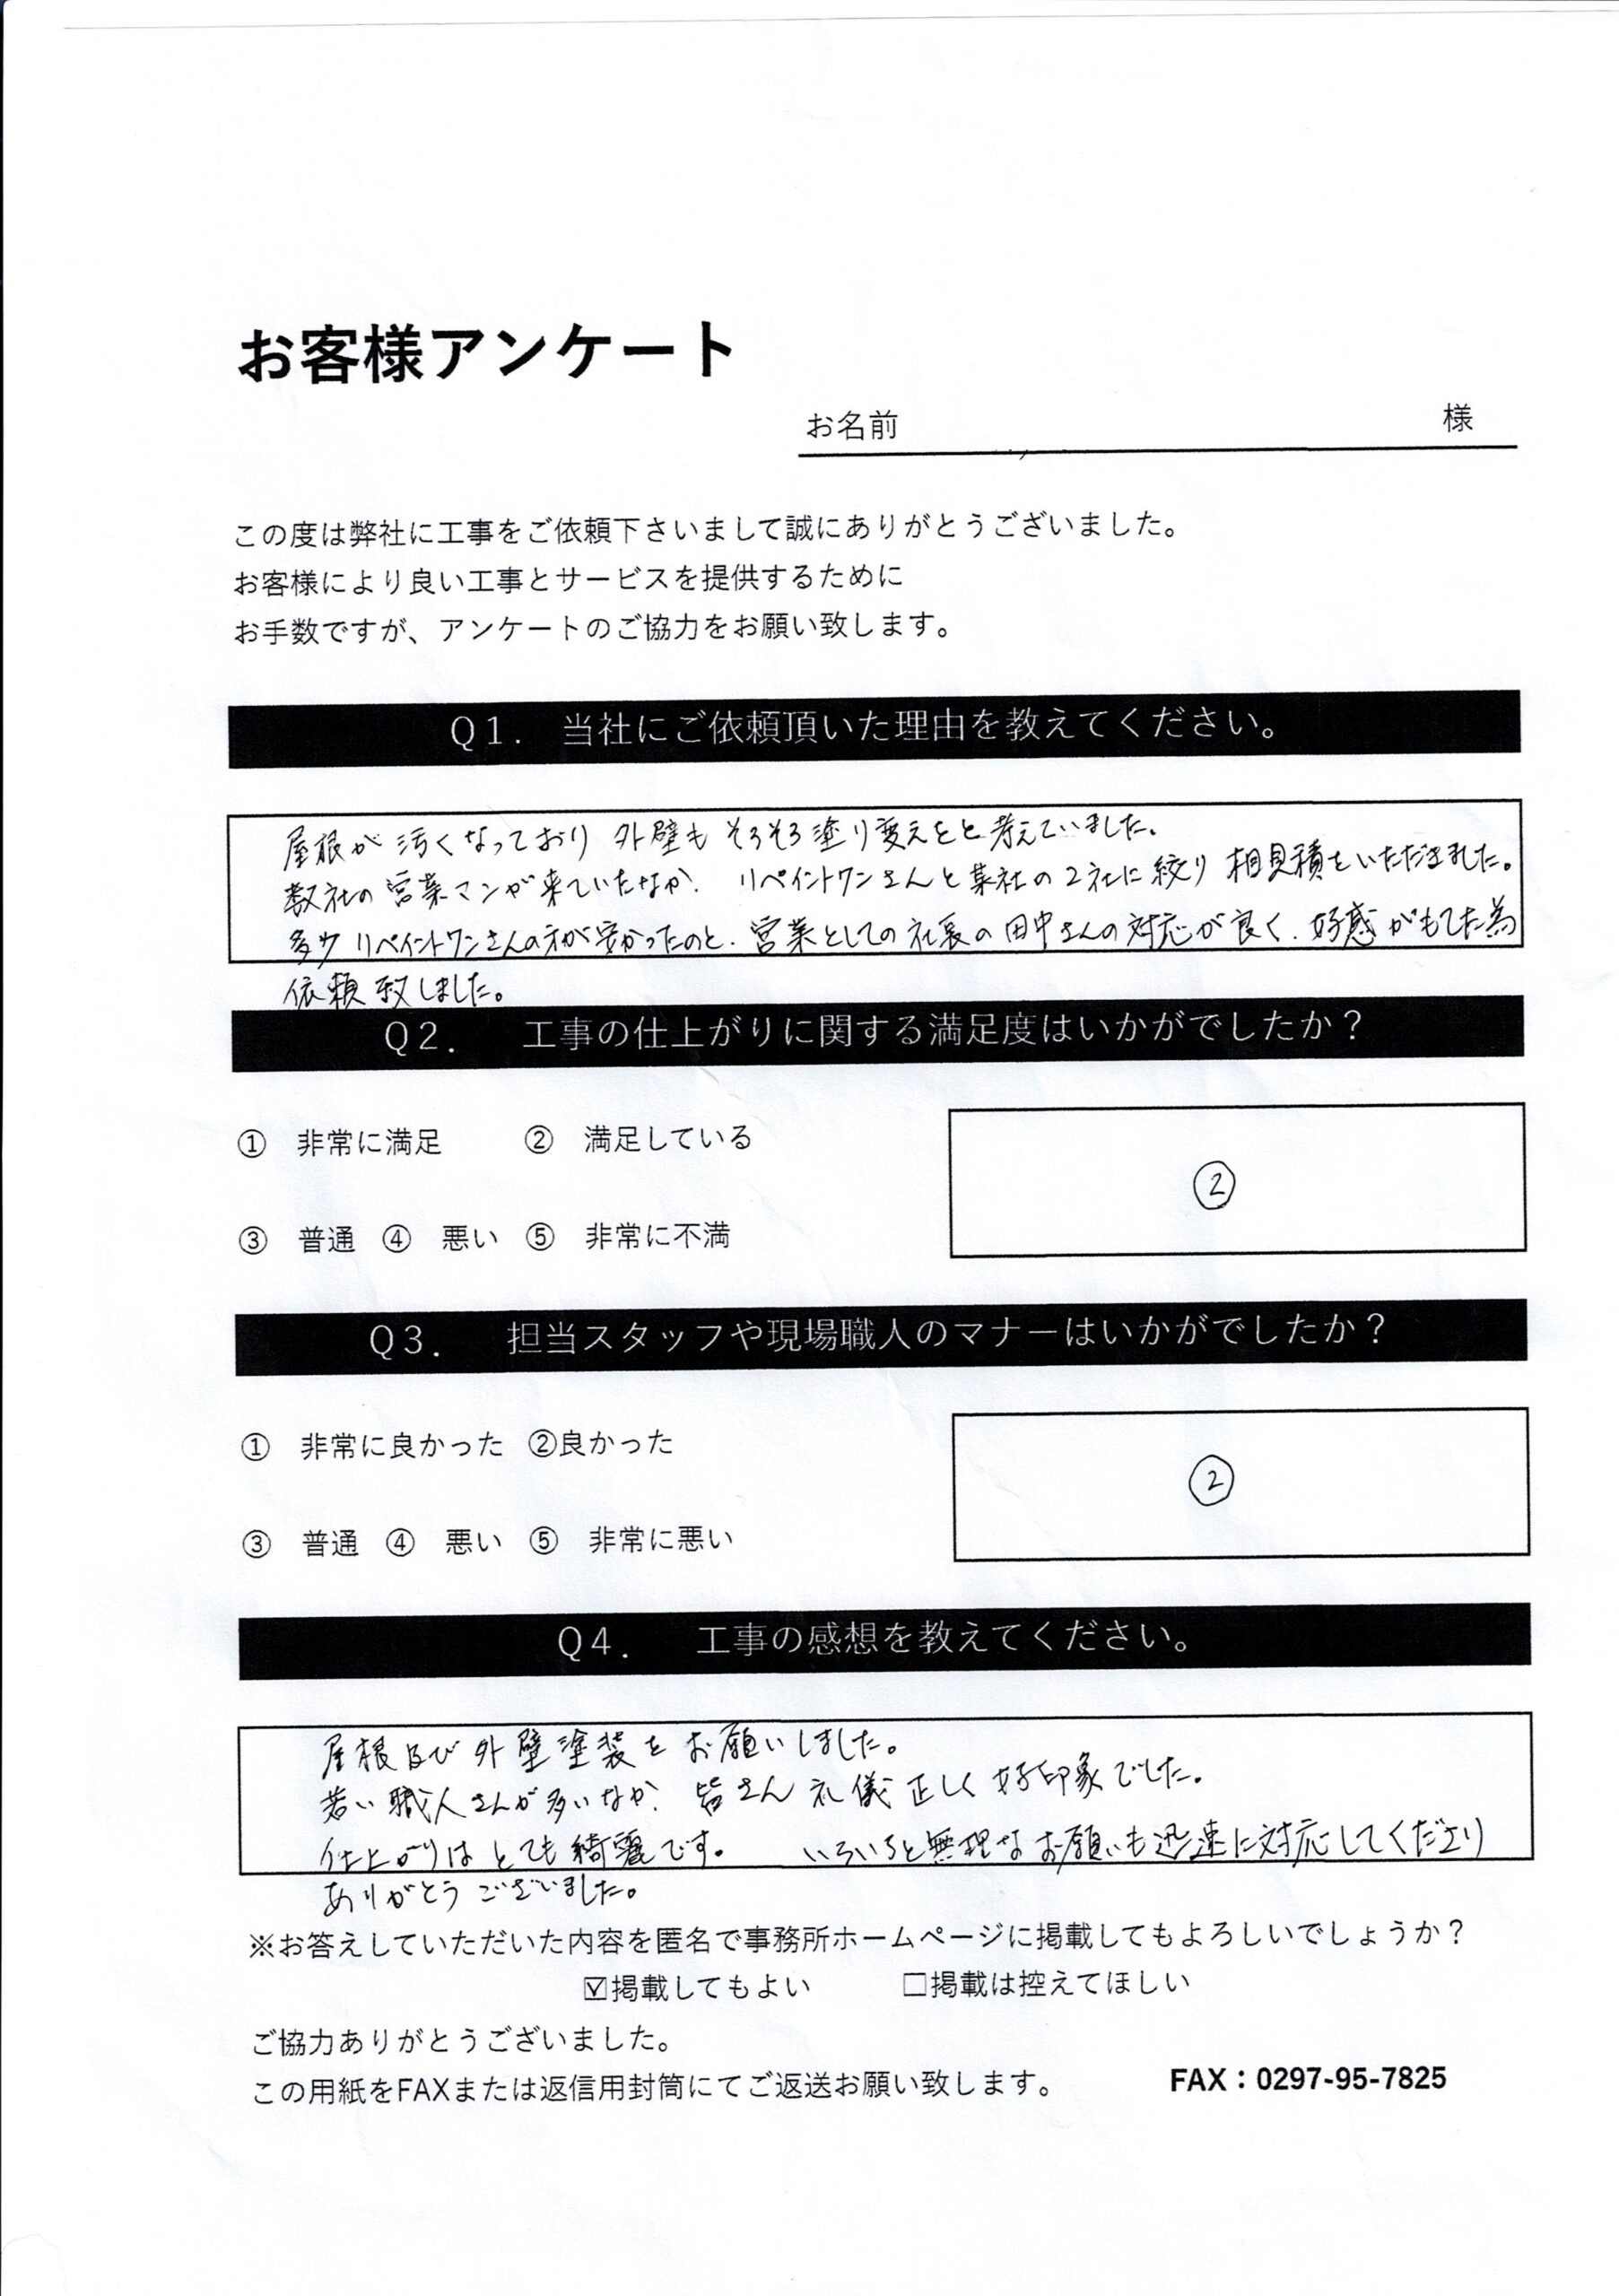 お客様アンケート
お名前 様
この度は弊社に工事をご依頼下さいまして誠にありがとうございました。
お客様により良い工事とサービスを提供するために
お手数ですが、アンケートのご協力をお願い致します。
Q1. 当社にご依頼頂いた理由を教えてください。
屋根が汚くなっており 外壁も そろそろ塗り変えをと考えていました。
数社の営業マンが来ていたなか、リペイントワンさんと某社の2社に絞り 相見積をいただきました。
多少 リペイントワンさんの方が安かったのと、営業としての社長の田中さんの対応が良く、好感がもてた為
依頼致しました。
Q2. 工事の仕上がりに関する満足度はいかがでしたか？
① 非常に満足 ② 満足している
②
③ 普通 ④ 悪い ⑤ 非常に不満
Q3. 担当スタッフや現場職人のマナーはいかがでしたか？
① 非常に良かった ②良かった
②
③ 普通 ④ 悪い ⑤ 非常に悪い
Q4. 工事の感想を教えてください。
屋根及び外壁塗装をお願いしました。
若い職人さんが多いなか、皆さん礼儀正しく好印象でした。
仕上がりはとても綺麗です。 いろいろと無理なお願いも迅速に対応してくださり
ありがとうございました。
※お答えしていただいた内容を匿名で事務所ホームページに掲載してもよろしいでしょうか？
☑掲載してもよい □掲載は控えてほしい
ご協力ありがとうございました。
この用紙をFAXまたは返信用封筒にてご返送お願い致します。 FAX：0297-95-7825